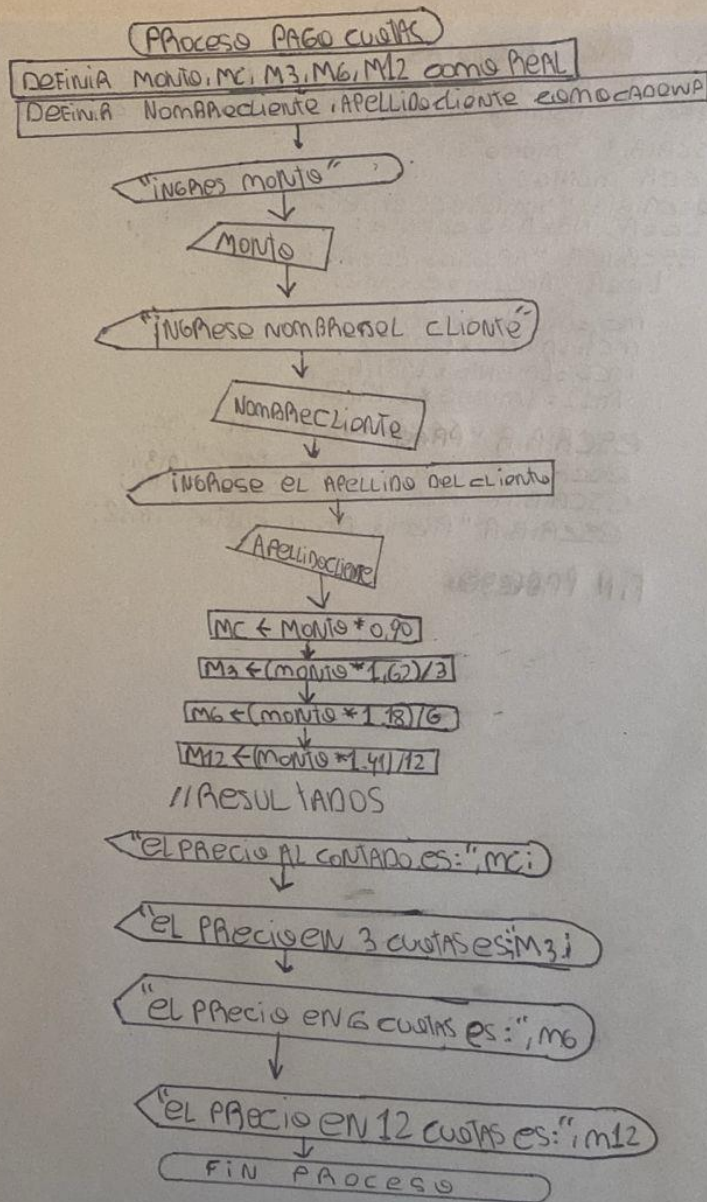 PROCESO PAGO CUOTAS
DEFINIR MONTO, MC, M3, M6, M12 COMO REAL
DEFINIR NOMBRECLIENTE, APELLIDOCLIENTE COMO CADENA
"INGRES MONTO"
MONTO
"INGRESE NOMBREDEL CLIENTE"
NOMBRECLIENTE
INGRESE EL APELLIDO DEL CLIENTE
APELLIDOCLIENTE
MC ← MONTO * 0,90
M3 ← (MONTO * 1,62)/3
M6 ← (MONTO * 1.18)/6
M12 ← (MONTO * 1.41)/12
//RESULTADOS
"EL PRECIO AL CONTADO ES:", MC;
"EL PRECIO EN 3 CUOTAS ES;"M3;
"EL PRECIO EN 6 CUOTAS ES:", M6
"EL PRECIO EN 12 CUOTAS ES:", M12
FIN PROCESO